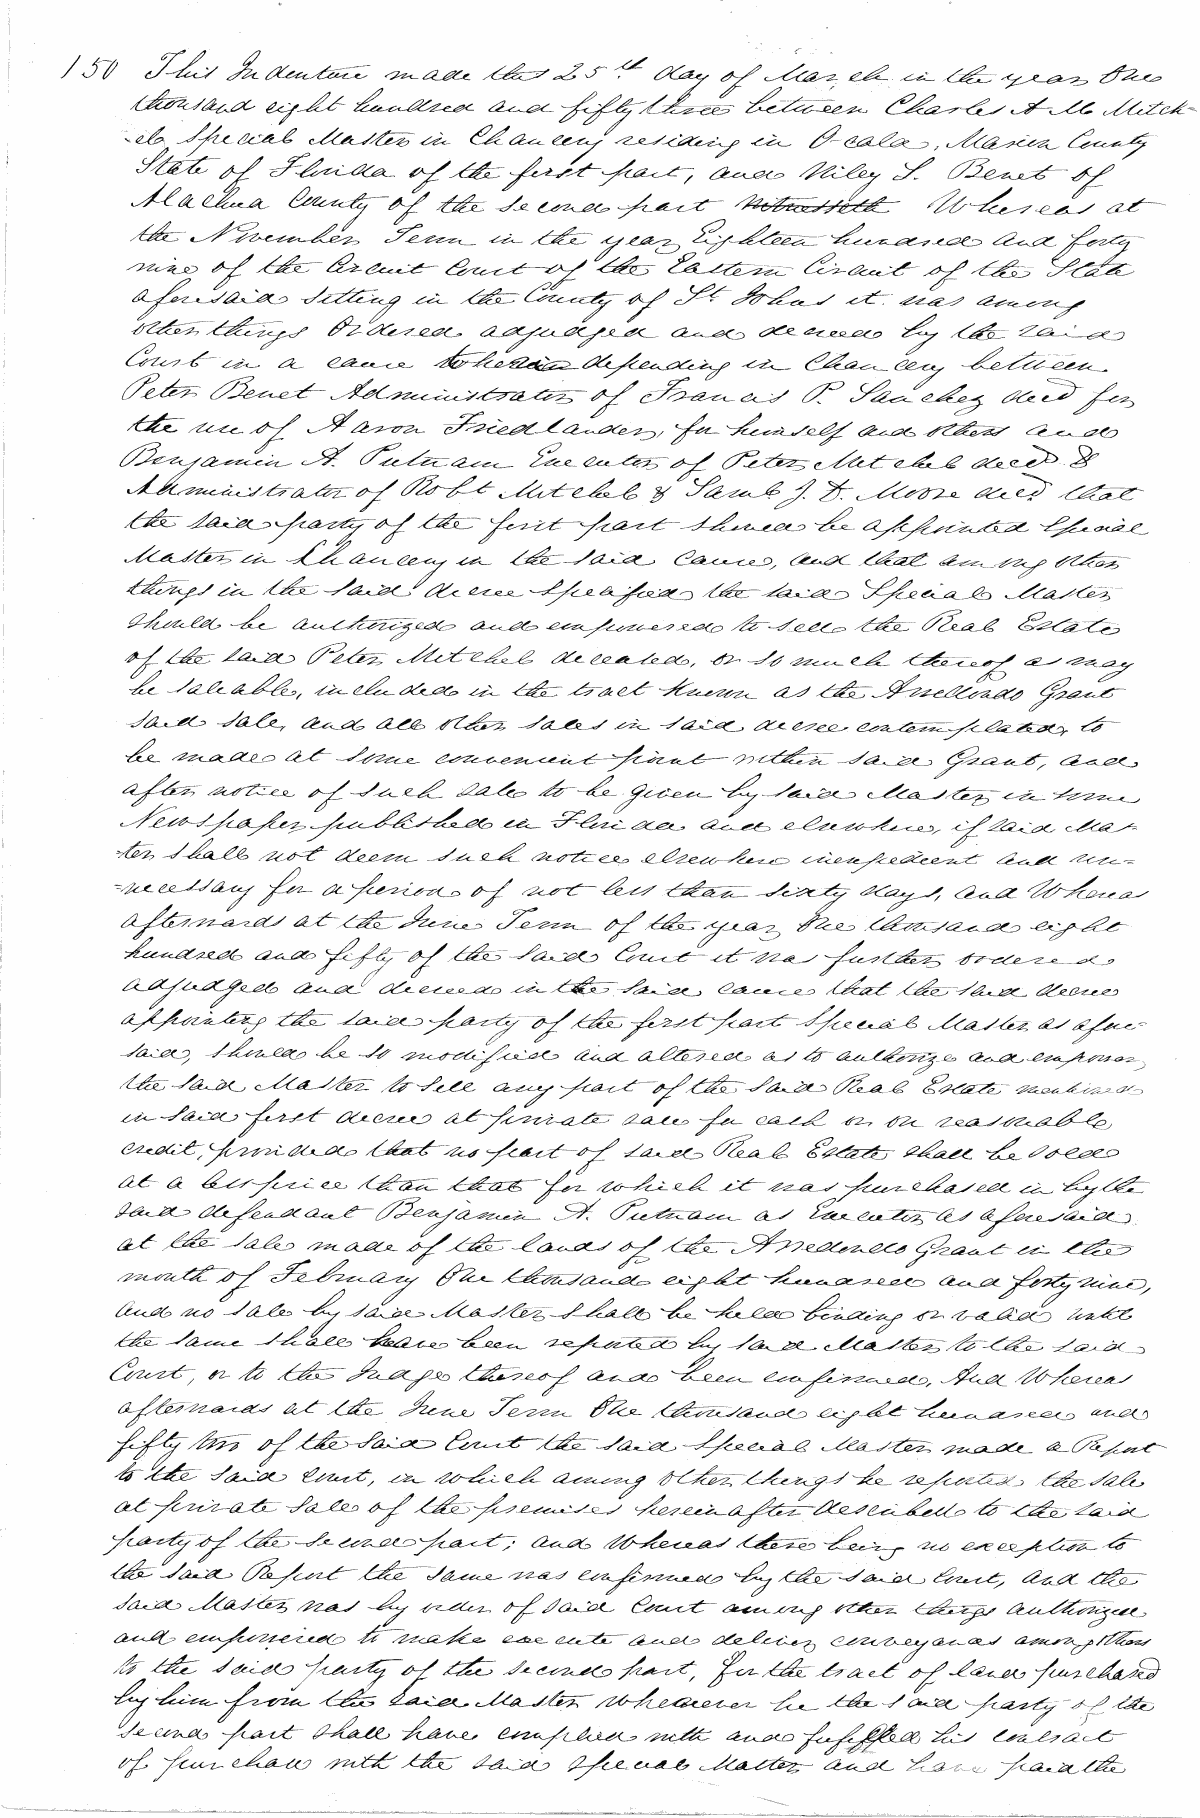 150 This Indenture made this 25th day of March in the year One
thousand eight hundred and fifty three between Charles A. M. Mitch-
-el Special Master in Chancery residing in Ocala, Marion County
State of Florida of the first part, and Riley S. Benet of
Alachua County of the second part Witnesseth Whereas at
the November Term in the year Eighteen hundred and forty
nine of the Circuit Court of the Eastern Circuit of the State
aforesaid sitting in the County of St Johns it was among
other things Ordered adjudged and decreed by the said
Court in a cause therein depending in Chancery between
Peter Benet Administrator of Francis P. Sanchez decd for
the use of Aaron Friedlander, for himself and others and
Benjamin A. Putnam Executor of Peter Mitchel decd &
Administrator of Robt Mitchel & Saml J. D. Moore decd that
the said party of the first part should be appointed Special
Master in Chancery in the said cause, and that among other
things in the said decree specified the said Special Master
should be authorized and empowered to sell the Real Estate
of the said Peter Mitchel deceased, or so much thereof as may
be saleable, included in the tract known as the Arredondo Grant
said sale, and all other sales in said decree contemplated, to
be made at some convenient point within said Grant, and
after notice of such sale to be given by said Master in some
Newspaper published in Florida and elsewhere, if said Mas-
-ter shall not deem such notice elsewhere inexpedient and un-
-necessary for a period of not less than sixty days, and Whereas
afterwards at the June Term of the year One thousand eight
hundred and fifty of the said Court it was further ordered
adjudged and decreed in the said cause that the said decree
appointing the said party of the first part Special Master as afore-
said, should be so modified and altered as to authorize and empower
the said Master to sell any part of the said Real Estate mentioned
in said first decree at private sale for cash or on reasonable
credit, provided that no part of said Real Estate shall be sold
at a less price than that for which it was purchased in by the
said defendant Benjamin A. Putnam as Executor as aforesaid
at the sale made of the lands of the Arredondo Grant in the
month of February One thousand eight hundred and forty nine,
and no sale by said Master shall be held binding or valid until
the same shall have been reported by said Master to the said
Court, or to the Judge thereof and been confirmed, And Whereas
afterwards at the June Term One thousand eight hundred and
fifty two of the said Court the said Special Master made a Report
to the said Court, in which among other things he reported the sale
at private sale of the premises hereinafter described to the said
party of the second part; and Whereas there being no exception to
the said Report the same was confirmed by the said Court, and the
said Master was by order of said Court among other things authorized
and empowered to make execute and deliver conveyances among others
to the said party of the second part, for the tract of land purchased
by him from the said Master whenever he the said party of the
second part shall have complied with and fulfilled his contract
of purchase with the said Special Master and have paid the